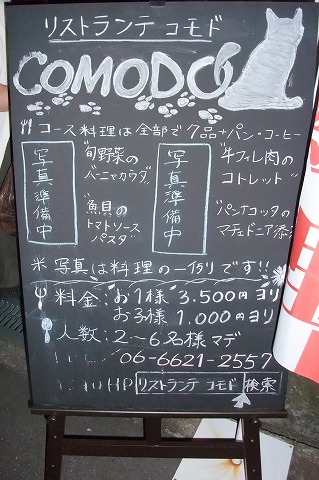 リストランテ コモド
COMODO
コース料理は全部で7品+パン・コーヒー
写真準備中
"旬野菜の
バーニャカウダ"
"魚貝の
トマトソース
パスタ"
写真準備中
"牛フィレ肉の
コトレット"
"パンナコッタの
マチェドニア
※写真は料理の一例です!!
料金:お1様 3.500円ヨリ
お子様 1.000円ヨリ
人数:2〜6名様マデ
06-6621-2557
HP リストランテ コモド 検索